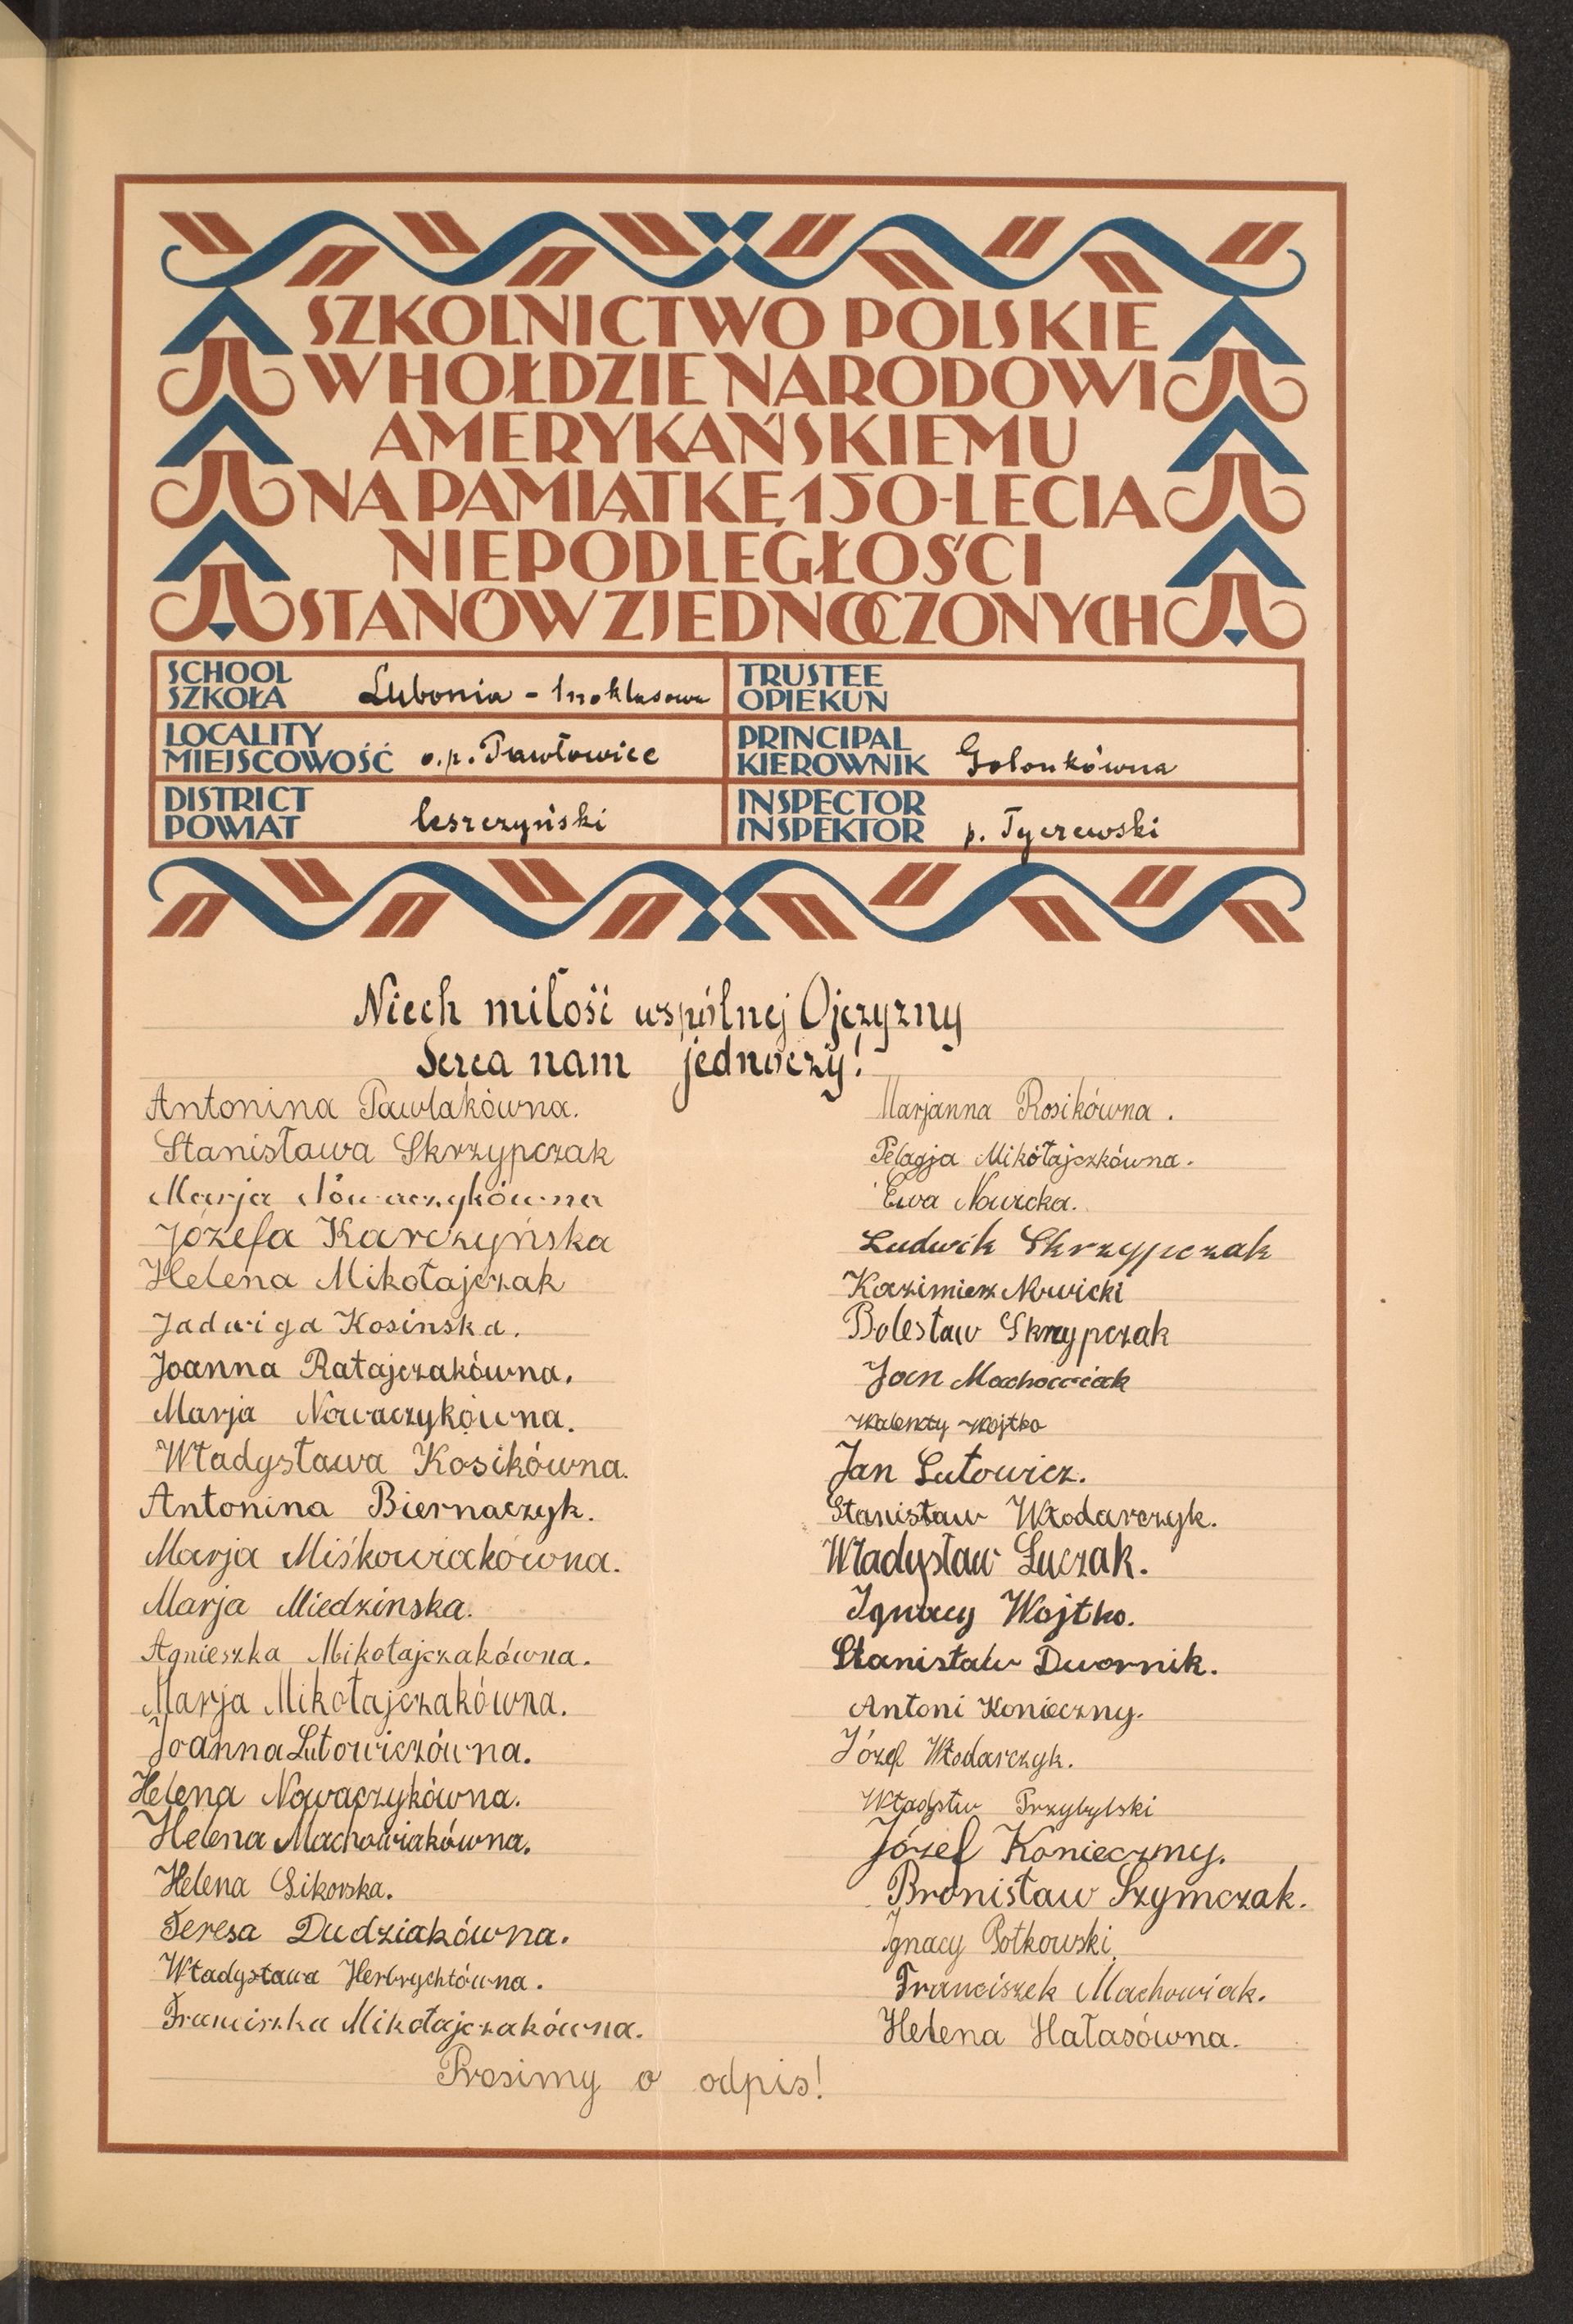 SZKOLNICTWO POLSKIE
W HOŁDZIE NARODOWI
AMERYKAŃSKIEMU
NA PAMIĄTKĘ 150-LECIA
NIEPODLEGŁOŚCI
STANÓW ZJEDNOCZONYCH
SCHOOL
SZKOŁA Lubonia - 1no klasowa
TRUSTEE
OPIEKUN
LOCALITY
MIEJSCOWOŚĆ o.p. Pawłowice
PRINCIPAL
KIEROWNIK Golonkówna
DISTRICT
POWIAT leszczyński
INSPECTOR
INSPEKTOR p. Tyczewski
Niech miłość wspólnej Ojczyzny
Serca nam jednoczy!
Antonina Pawlakówna.
Stanisława Skrzypczak
Marja Nowaczykówna
Józefa Karczyńska
Helena Mikołajczak
Jadwiga Kosinska.
Joanna Ratajczakówna.
Marja Nowaczykówna.
Władysława Kosikówna.
Antonina Biernaczyk.
Marja Miśkowiakówna.
Marja Miedzinska.
Agnieszka Mikołajczakówna.
Marja Mikołajczakówna.
Joanna Lutowiczówna.
Helena Nowaczykówna.
Helena Machowiakówna.
Helena Sikorska.
Teresa Dudziakówna.
Władysława Herbrychtówna.
Franciszka Mikołajczakówna.
Marjanna Rosikówna.
Pelagja Mikołajczkówna.
Ewa Nowicka.
Ludwik Skrzypczak
Kazimierz Nowicki
Bolesław Skrzypczak
Jan Machowiak
Walenty Wojtko
Jan Lutowicz.
Stanisław Włodarczyk.
Władysław Luczak.
Ignacy Wojtko.
Stanisław Dwornik.
Antoni Konieczny.
Józef Włodarczyk.
Władysłw Przybylski
Józef Konieczmy.
Bronisław Szymczak.
Ignacy Potkowski.
Franciszek Machowiak.
Helena Hałasówna.
Prosimy o odpis!